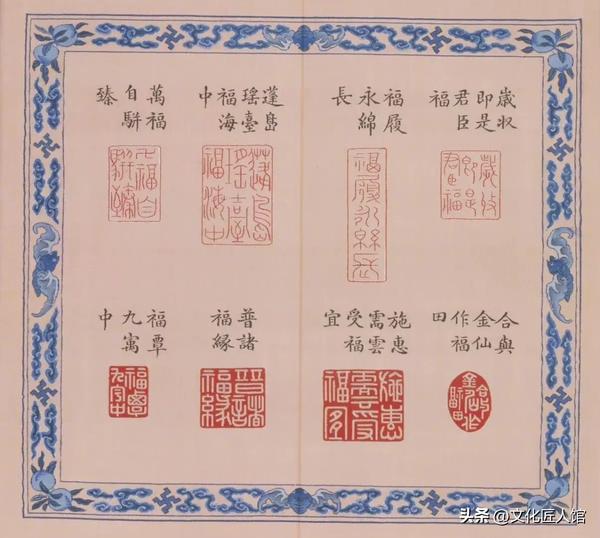 歳収
即是
君臣
福
福履
永綿
長
蓬島
瑤臺
福海
中
萬福
自駢
臻
合與
金仙
作福
田
施惠
需雲
受福
宜
普諸
福緣
福覃
九寓
中
头条 @文化匠人馆